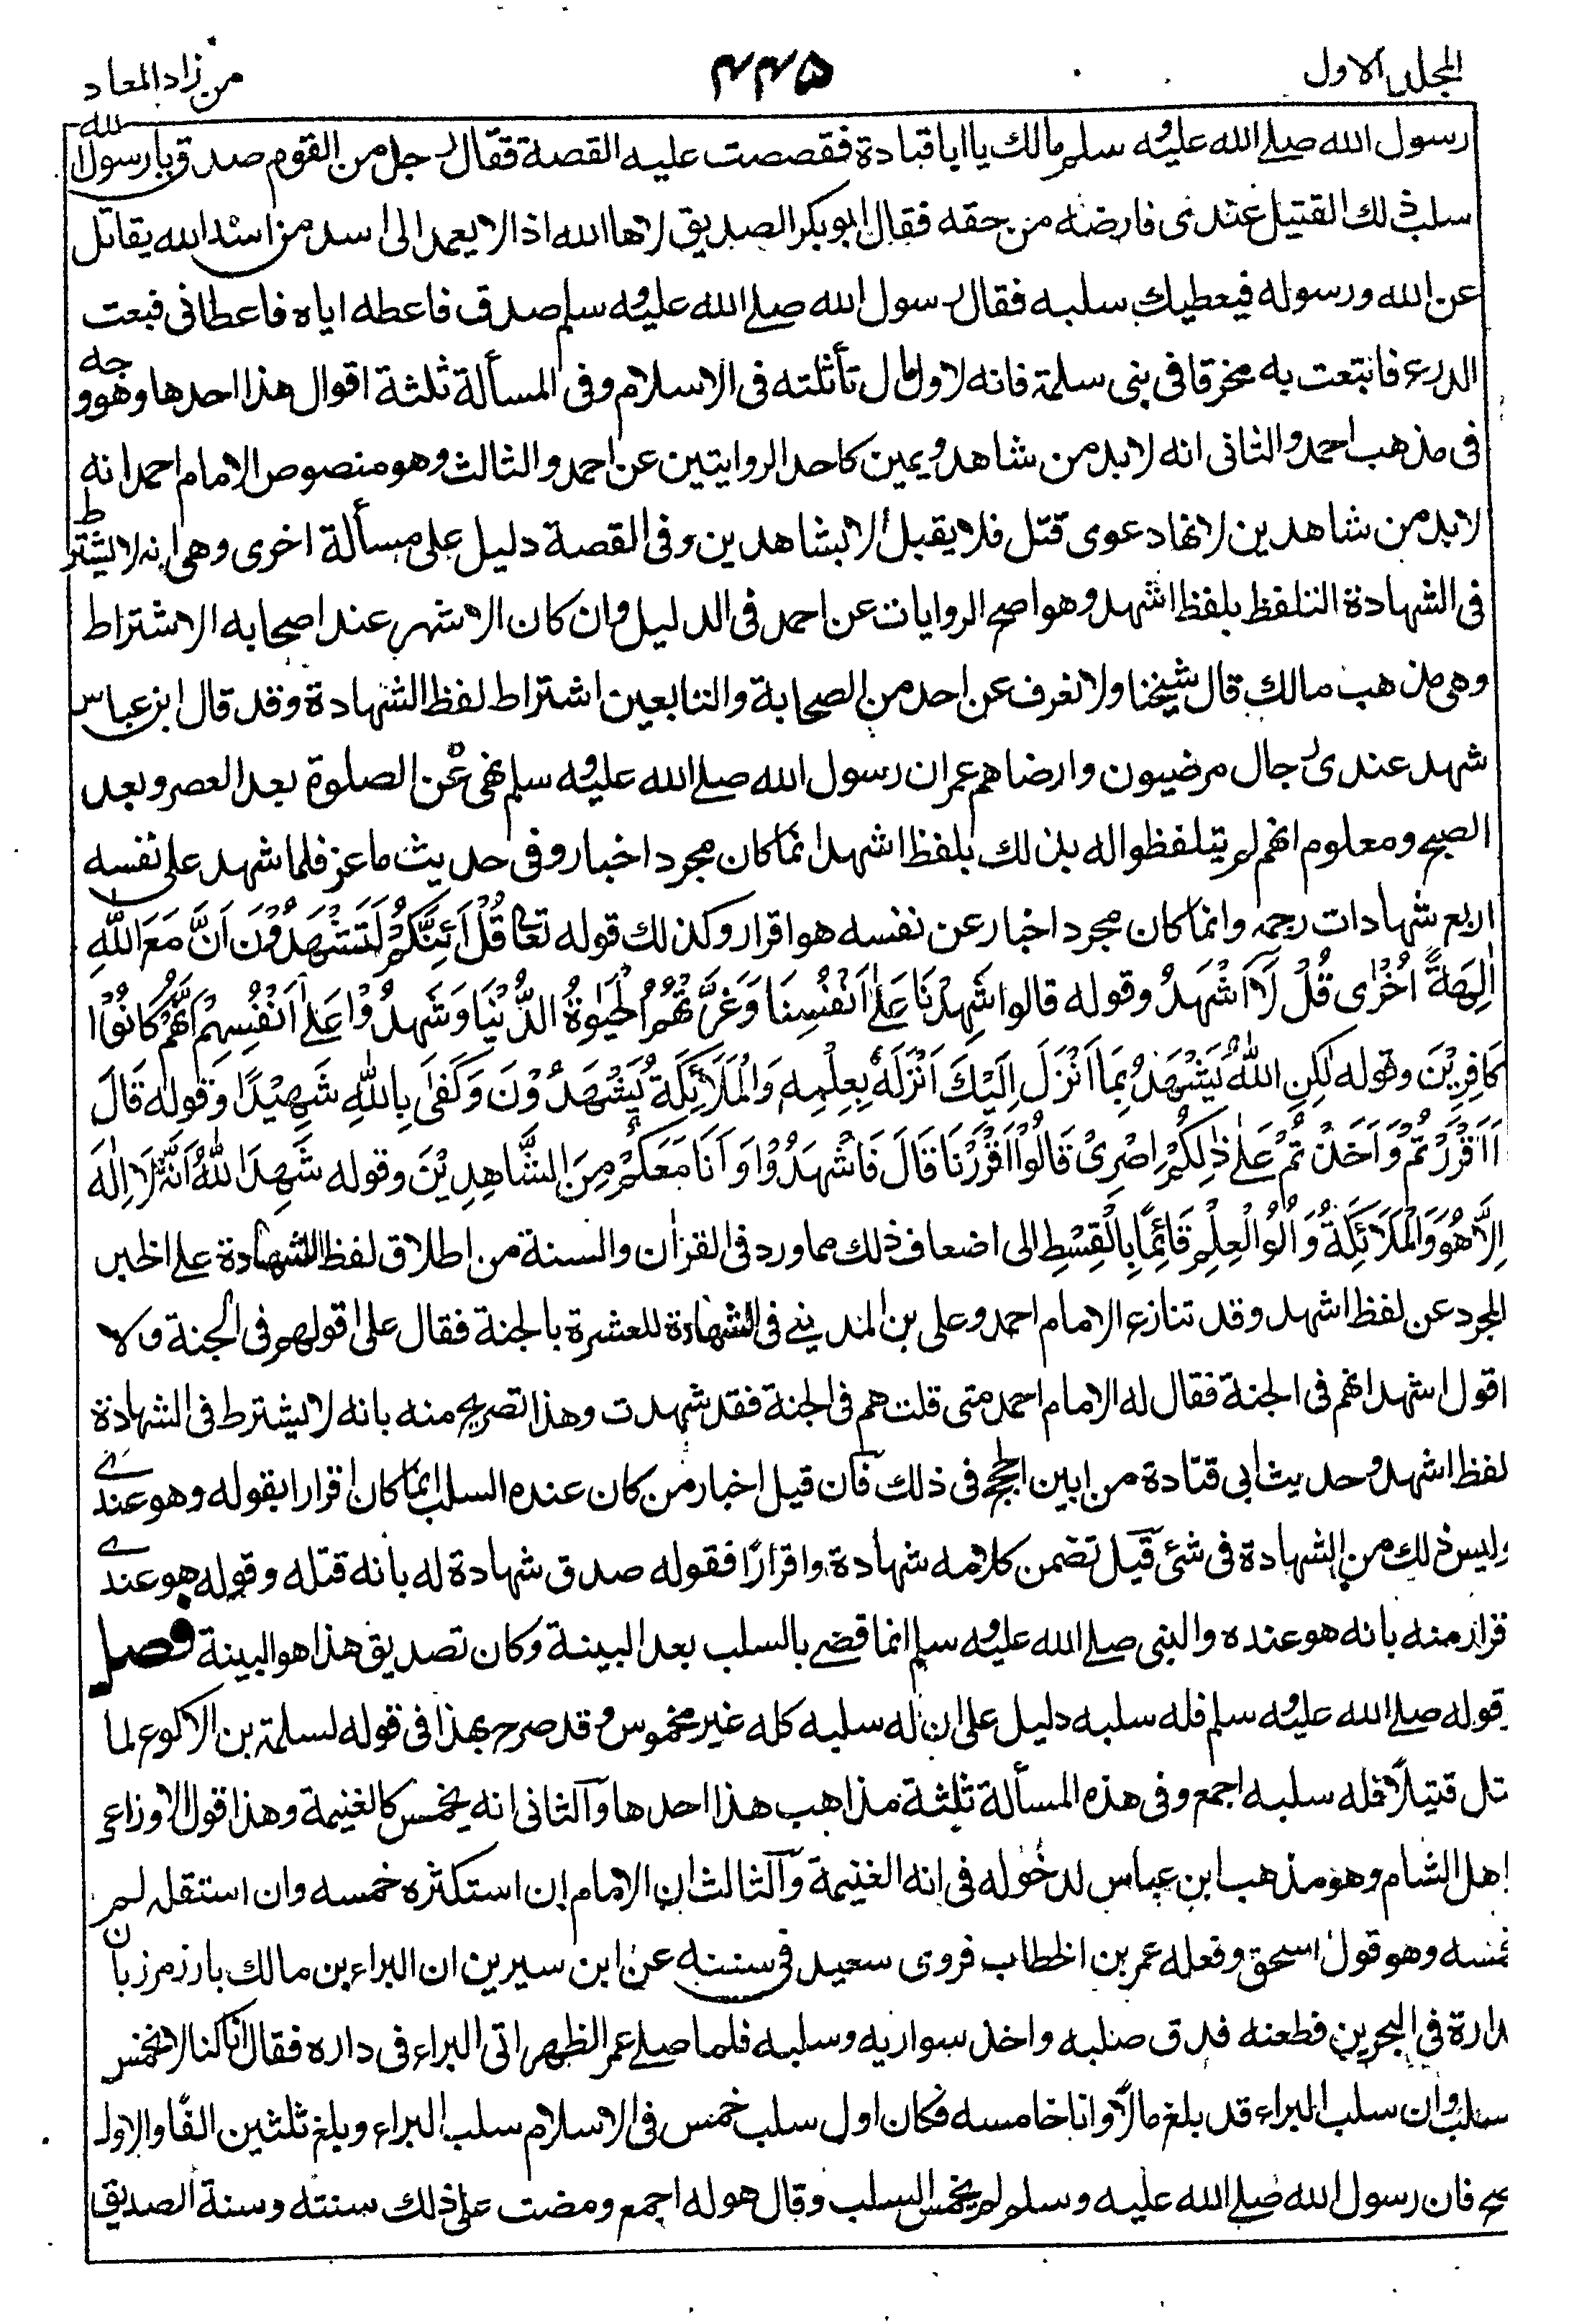 المجلد الاول
۴۴۵
من زاد المعاد
رسول الله صلے الله عليه وسلم مالك يا ابا قتادة فقصصت عليه القصة فقال رجل من القوم صدق يا رسول الله
سلب ذلك القتيل عندى فارضه من حقه فقال ابو بكر الصديق لاها الله اذا لا يعمد الى اسد من اسد الله يقاتل
عن الله ورسوله فيعطيك سلبه فقال رسول الله صلے الله عليه وسلم صدق فاعطه اياه فاعطانى فبعت
الدرع فابتعت به مخرفا فى بنى سلمة فانه لاول مال تأثلته فى الاسلام وفى المسألة ثلثة اقوال هذا احدها وهو وجه
فى مذهب احمد والثانى انه لابد من شاهد ويمين كاحد الروايتين عن احمد والثالث وهو منصوص الامام احمد انه
لابد من شاهدين لانها دعوى قتل فلا يقبل الا بشاهدين وفى القصة دليل على مسألة اخرى وهى انه لا يشترط
فى الشهادة التلفظ بلفظ اشهد وهو اصح الروايات عن احمد فى الدليل وان كان الاشهر عند اصحابه الاشتراط
وهى مذهب مالك قال شيخنا ولا نعرف عن احد من الصحابة والتابعين اشتراط لفظ الشهادة وقد قال ابن عباس
شهد عندى رجال مرضيون وارضاهم عمر ان رسول الله صلے الله عليه وسلم نهى عن الصلوة بعد العصر وبعد
الصبح ومعلوم انهم لم يتلفظوا له بذلك بلفظ اشهد انما كان مجرد اخبار وفى حديث ماعز فلما شهد على نفسه
اربع شهادات رجمه وانما كان مجرد اخبار عن نفسه هو اقرار وكذلك قوله تعالى قُلْ اَئِنَّكُمْ لَتَشْهَدُوْنَ اَنَّ مَعَ اللّٰهِ
اٰلِهَةً اُخْرٰى قُلْ لَا اَشْهَدُ وقوله قالوا شَهِدْنَا عَلٰى اَنْفُسِنَا وَغَرَّتْهُمُ الْحَيٰوةُ الدُّنْيَا وَشَهِدُوْا عَلٰى اَنْفُسِهِمْ اَنَّهُمْ كَانُوْا
كَافِرِيْنَ وقوله لٰكِنِ اللّٰهُ يَشْهَدُ بِمَا اَنْزَلَ اِلَيْكَ اَنْزَلَهٗ بِعِلْمِهٖ وَالْمَلَائِكَةُ يَشْهَدُوْنَ وَكَفٰى بِاللّٰهِ شَهِيْدًا وَقوله قَالَ
اَاَقْرَرْتُمْ وَاَخَذْتُمْ عَلٰى ذٰلِكُمْ اِصْرِىْ قَالُوْا اَقْرَرْنَا قَالَ فَاشْهَدُوْا وَاَنَا مَعَكُمْ مِنَ الشَّاهِدِيْنَ وقوله شَهِدَ اللّٰهُ اَنَّهٗ لَا اِلٰهَ
اِلَّا هُوَ وَالْمَلَائِكَةُ وَاُلُوا الْعِلْمِ قَائِمًا بِالْقِسْطِ الى اضعاف ذلك مما ورد فى القراٰن والسنة من اطلاق لفظ الشهادة على الخبر
المجرد عن لفظ اشهد وقد تنازع الامام احمد وعلى بن المدينے فى الشهادة للعشرة بالجنة فقال على اقول هم فى الجنة ولا
اقول اشهد انهم فى الجنة فقال له الامام احمد متى قلت هم فى الجنة فقد شهدت وهذا تصريح منه بانه لا يشترط فى الشهادة
لفظ اشهد وحديث ابى قتادة من ابين الحجج فى ذلك فان قيل اخبار من كان عنده السلب انما كان اقرارا بقوله وهو عندے
وليس ذلك من الشهادة فى شئ قيل تضمن كلامه شهادة واقرارًا فقوله صدق شهادة له بانه قتله وقوله هو عندے
قرار منه بانه هو عنده والنبى صلے الله عليه وسلم انما قضے بالسلب بعد البينة وكان تصديق هذا هو البينة فصل
وقوله صلے الله عليه وسلم فله سلبه دليل على ان له سلبه كله غير مخموس وقد صرح بهذا فى قوله لسلمة بن الاكوع لما
تل قتيلًا فله سلبه اجمع وفى هذه المسألة ثلثة مذاهب هذا احدها والثانى انه يخمس كالغنيمة وهذا قول الاوزاعى
اهل الشام وهو مذهب ابن عباس لدخوله فى انه الغنيمة والثالث ان الامام ان استكثره خمسه وان استقله لم
خمسه وهو قول اسحق وفعله عمر بن الخطاب فروى سعيد فى سننه عن ابن سيرين ان البراء بن مالك بارز مرزبان
دارة فى البحرين فطعنه فدق صلبه واخذ سواريه وسلبه فلما صلے عمر الظهر اتى البراء فى داره فقال انا كنا لا نخمس
سلب وان سلب البراء قد بلغ مالًا وانا خامسه فكان اول سلب خمس فى الاسلام سلب البراء وبلغ ثلثين الفًا والاول
صح فان رسول الله صلے الله عليه وسلم لم يخمس السلب وقال هو له اجمع ومضت على ذلك سنته وسنة الصديق